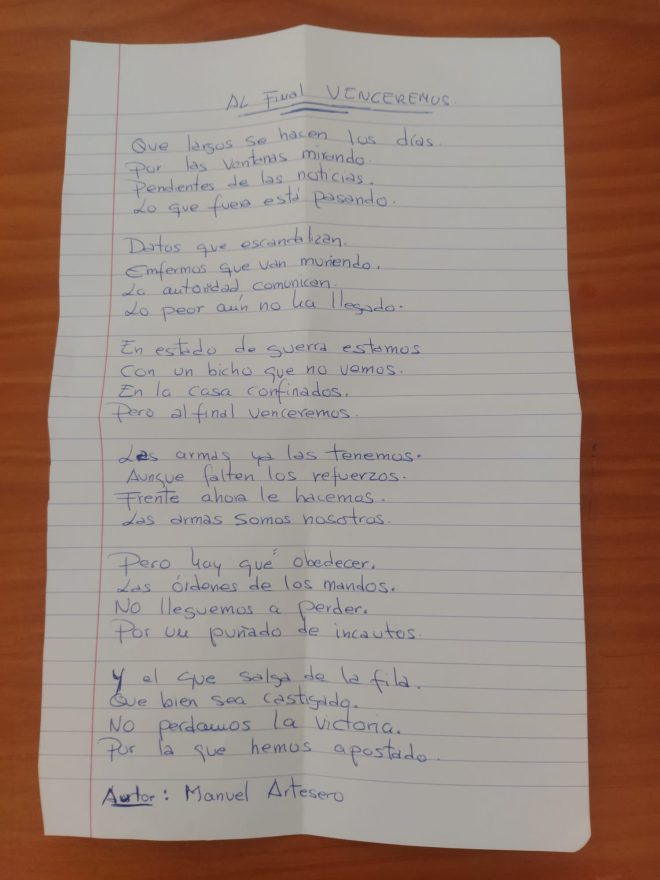 AL Final VENCEREMOS.
Que largos se hacen los días.
Por las ventanas mirando.
Pendientes de las noticias.
Lo que fuera está pasando.
Datos que escandalizan.
Emfermos que van muriendo.
La autoridad comunican.
Lo peor aún no ha llegado.
En estado de guerra estamos
Con un bicho que no vemos.
En la casa confinados.
Pero al final venceremos.
Las armas ya las tenemos.
Aunque falten los refuerzos.
Frente ahora le hacemos.
Las armas somos nosotros.
Pero hay qué obedecer.
Las órdenes de los mandos.
No lleguemos a perder.
Por un puñado de incautos.
Y el que salga de la fila.
Que bien sea castigado.
No perdamos la victoria.
Por la que hemos apostado.
Autor: Manuel Artesero